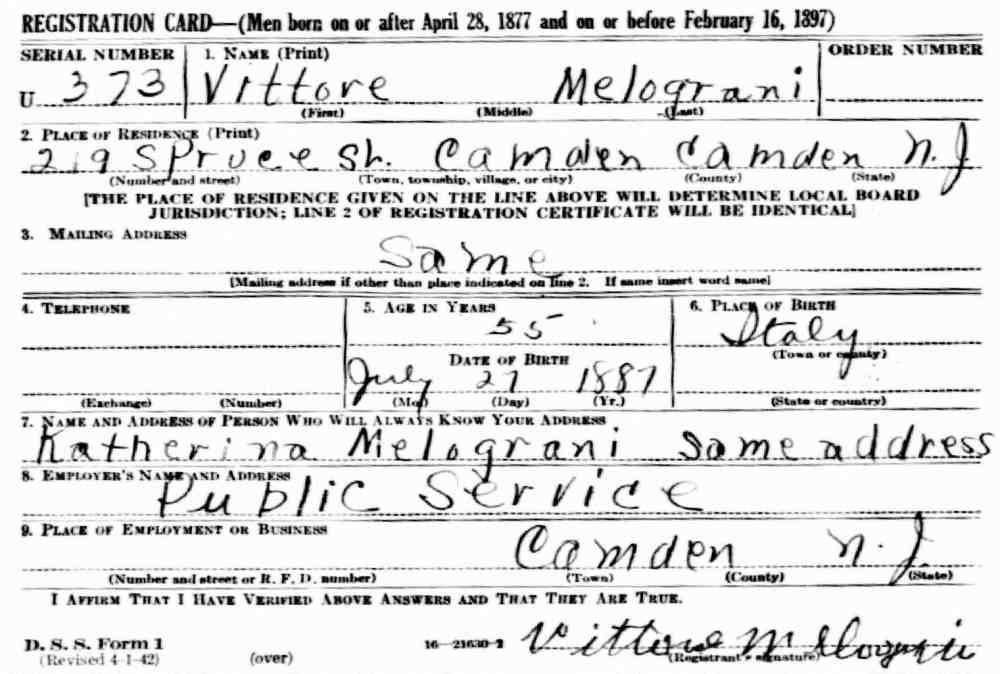 REGISTRATION CARD—(Men born on or after April 28, 1877 and on or before February 16, 1897)
SERIAL NUMBER 1. NAME (Print) ORDER NUMBER
U 373 Vittore Melograni
(First) (Middle) (Last)
2. PLACE OF RESIDENCE (Print)
219 Spruce St. Camden Camden N.J.
(Number and street) (Town, township, village, or city) (County) (State)
[THE PLACE OF RESIDENCE GIVEN ON THE LINE ABOVE WILL DETERMINE LOCAL BOARD
JURISDICTION; LINE 2 OF REGISTRATION CERTIFICATE WILL BE IDENTICAL]
3. MAILING ADDRESS
Same
[Mailing address if other than place indicated on line 2. If same insert word same]
4. TELEPHONE 5. AGE IN YEARS 6. PLACE OF BIRTH
55 Italy
DATE OF BIRTH (Town or county)
July 27 1887
(Exchange) (Number) (Mo.) (Day) (Yr.) (State or country)
7. NAME AND ADDRESS OF PERSON WHO WILL ALWAYS KNOW YOUR ADDRESS
Katherina Melograni same address
8. EMPLOYER'S NAME AND ADDRESS
Public Service
9. PLACE OF EMPLOYMENT OR BUSINESS
Camden N.J.
(Number and street or R. F. D. number) (Town) (County) (State)
I AFFIRM THAT I HAVE VERIFIED ABOVE ANSWERS AND THAT THEY ARE TRUE.
D. S. S. Form 1 16—21630-2 Vittore Melograni
(Revised 4-1-42) (over) (Registrant's signature)